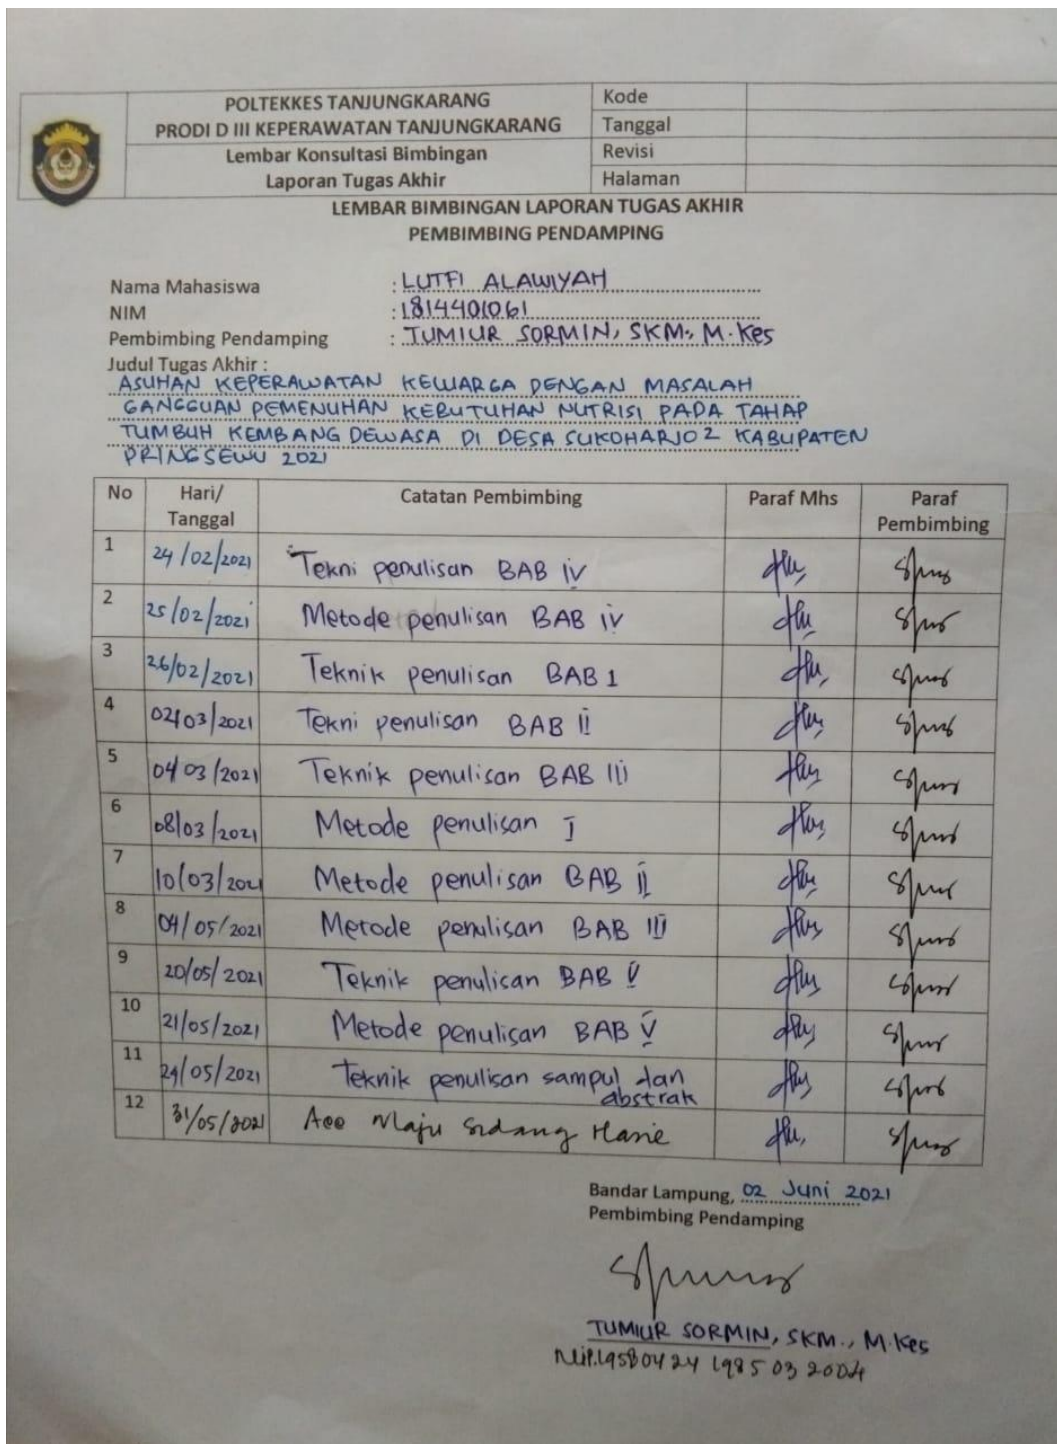 POLTEKKES TANJUNGKARANG
PRODI D III KEPERAWATAN TANJUNGKARANG
Lembar Konsultasi Bimbingan
Laporan Tugas Akhir
Kode
Tanggal
Revisi
Halaman
LEMBAR BIMBINGAN LAPORAN TUGAS AKHIR
PEMBIMBING PENDAMPING
Nama Mahasiswa : LUTFI ALAWIYAH
NIM : 1814401061
Pembimbing Pendamping : TUMIUR SORMIN, SKM., M.Kes
Judul Tugas Akhir :
ASUHAN KEPERAWATAN KELUARGA DENGAN MASALAH
GANGGUAN PEMENUHAN KEBUTUHAN NUTRISI PADA TAHAP
TUMBUH KEMBANG DEWASA DI DESA SUKOHARJO 2 KABUPATEN
PRINGSEWU 2021
No Hari/ Tanggal Catatan Pembimbing Paraf Mhs Paraf Pembimbing
1 24/02/2021 Tekni penulisan BAB IV
2 25/02/2021 Metode penulisan BAB IV
3 26/02/2021 Teknik penulisan BAB 1
4 02/03/2021 Tekni penulisan BAB II
5 04/03/2021 Teknik penulisan BAB III
6 08/03/2021 Metode penulisan I
7 10/03/2021 Metode penulisan BAB II
8 04/05/2021 Metode penulisan BAB III
9 20/05/2021 Teknik penulisan BAB V
10 21/05/2021 Metode penulisan BAB V
11 /05/2021 Teknik penulisan sampul dan
abstrak
12 31/05/2021 Acc Maju Sidang
Bandar Lampung, 02 Juni 2021
Pembimbing Pendamping
TUMIUR SORMIN, SKM., M.Kes
Nip.19580424 1985 03 2004